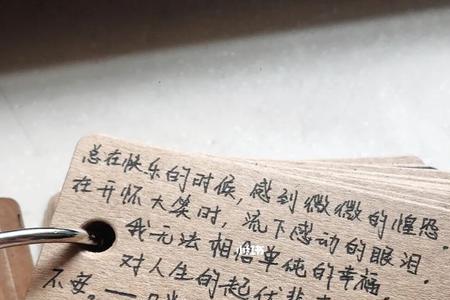 总在快乐的时候，感到微微的惶恐。
在开怀大笑时，流下感动的眼泪。
我无法相信单纯的幸福
小红书
对人生的起伏非
不安。——